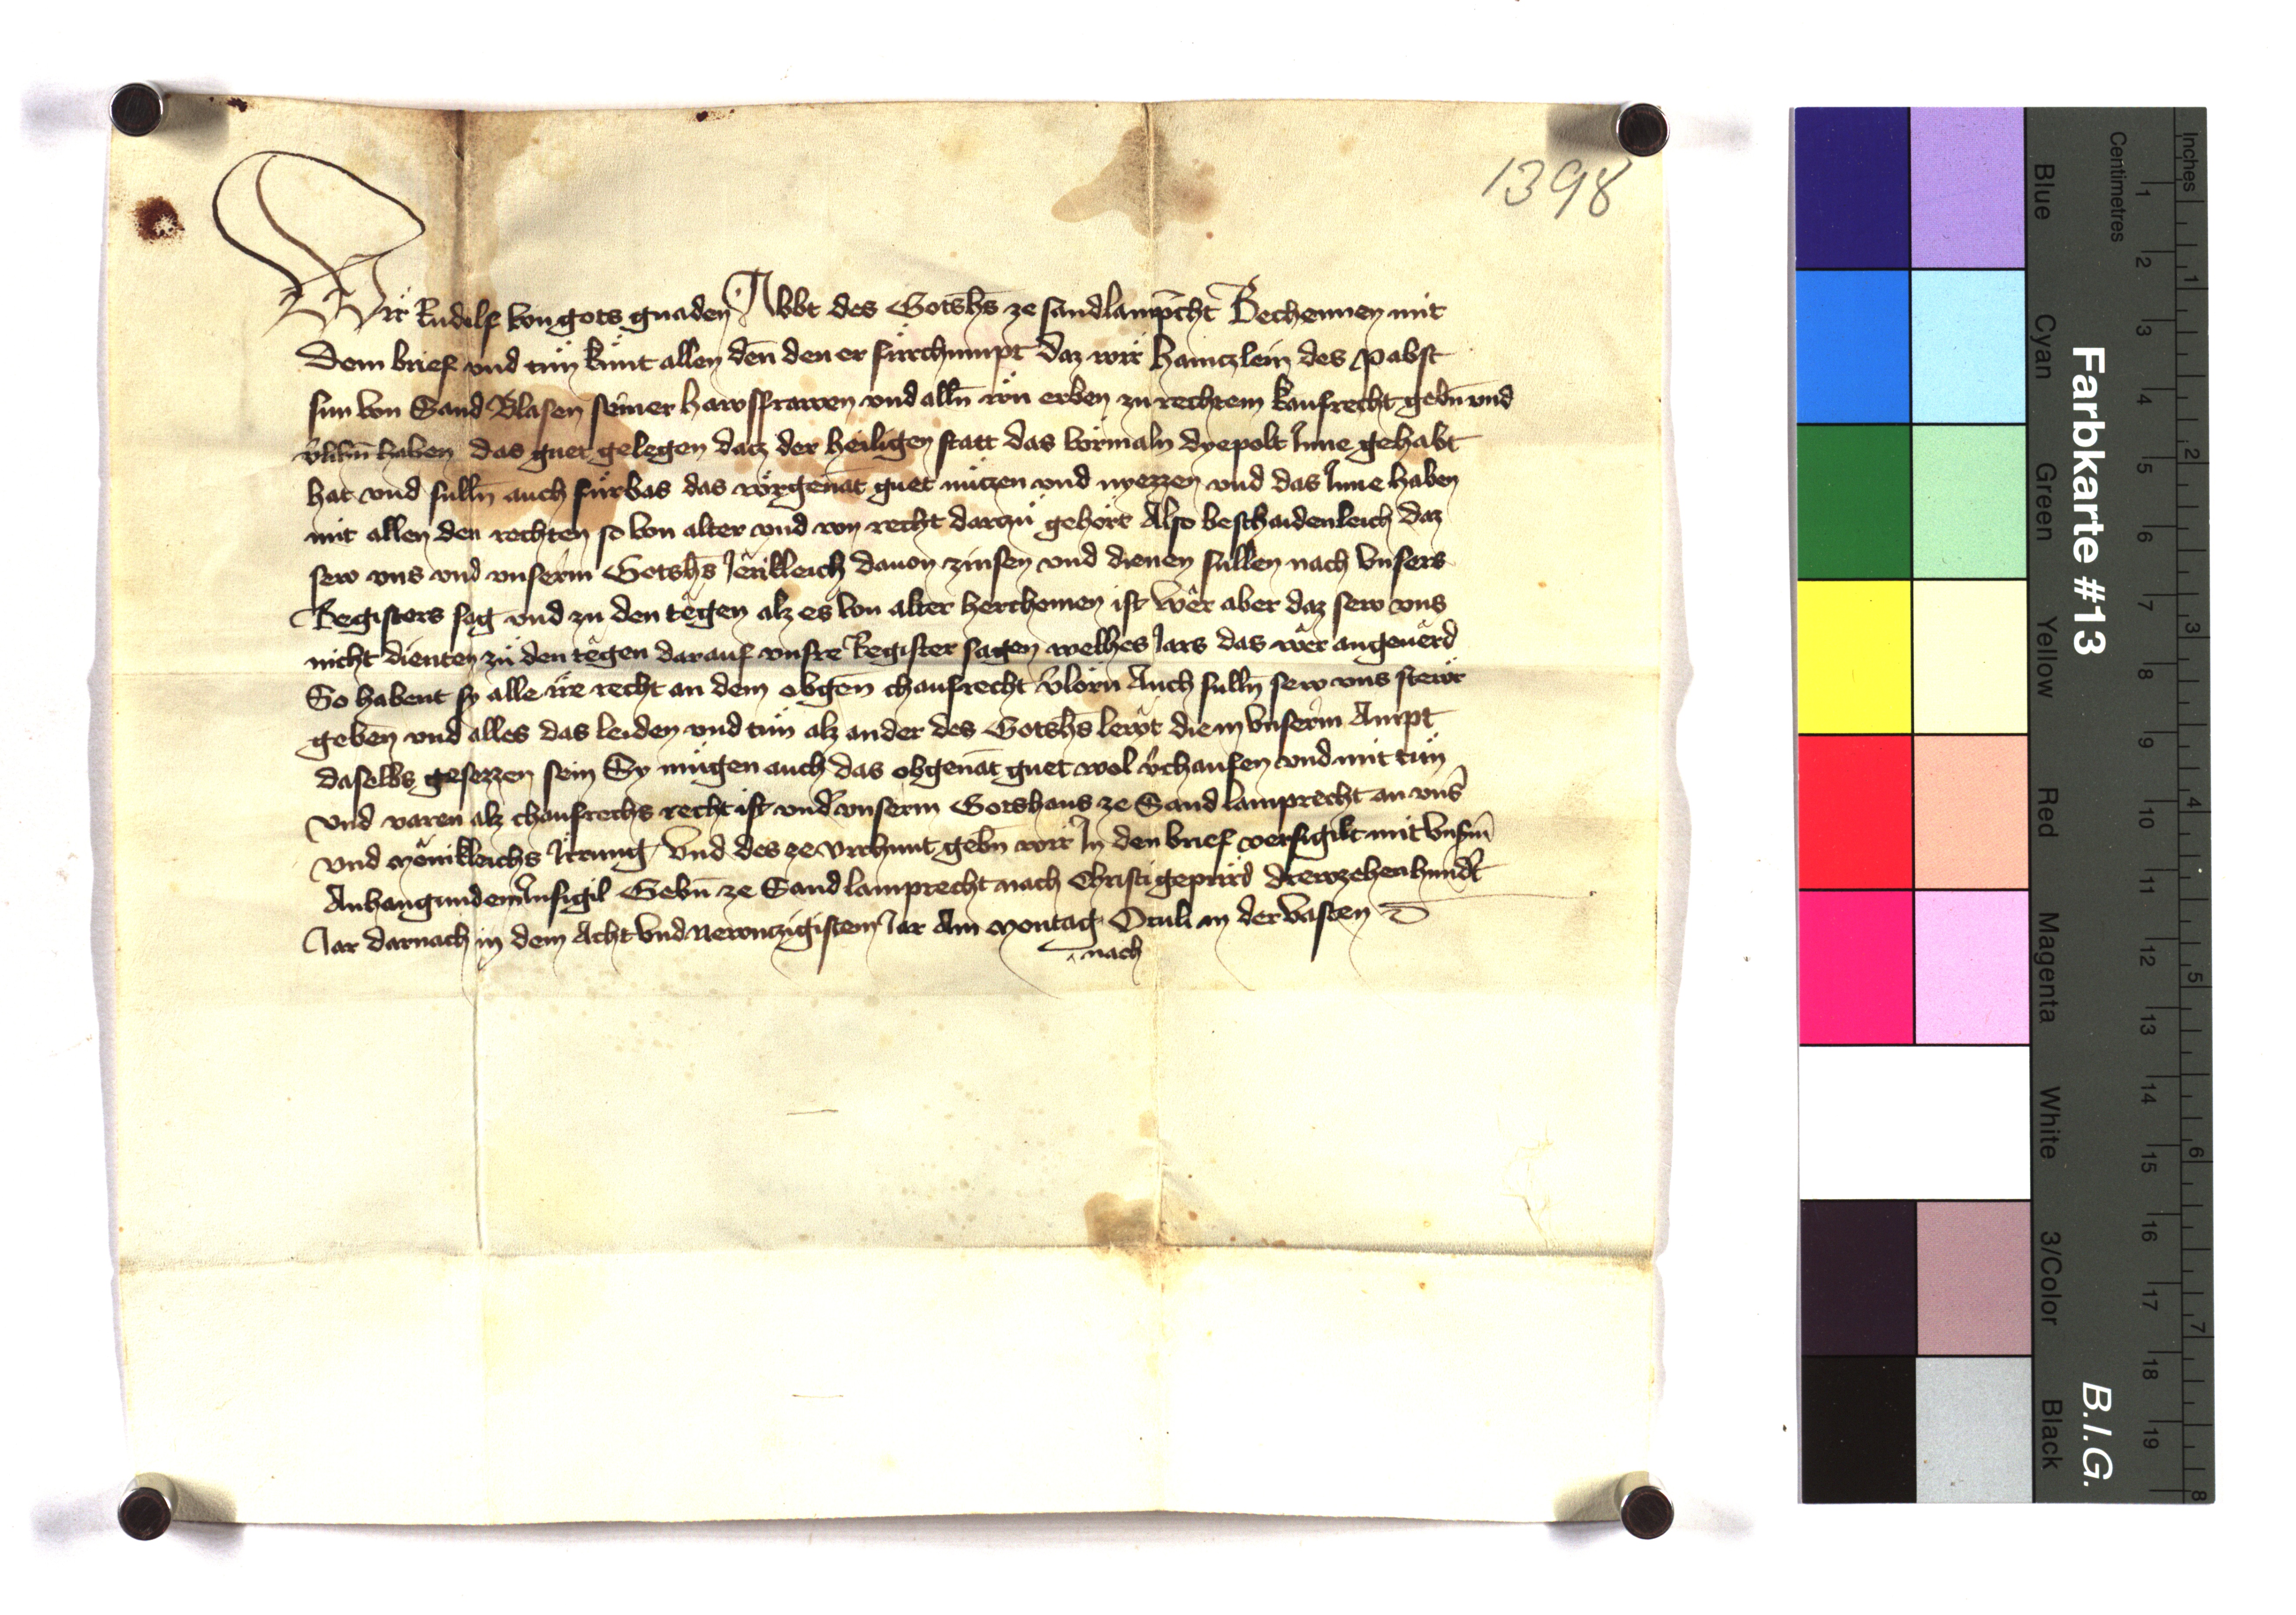 1398
Wir Rudolf von gots gnaden Abbt des Gotshs ze sandlamprecht Bechennen mit
dem brief vnd tun kunt allen den den er furchumpt daz wir haintzlein des pabst
sun von Sand Blasen seiner hawsfrawen vnd alln irn erben zu rechtem kaufrecht gebn vnd
vlihn haben das guet gelegen datz der heiligen statt das vormaln dyepolt Inne gehabt
hat vnd sulln auch furbas das vorgenat guet nutzen vnd nyezzen vnd das Inne haben
mit allen den rechten so von alter vnd von recht darzu gehort Also beschaidenleich daz
sew vns vnd vnserm Gotshs Jerikleich dauon zinsen vnd dienen sullen nach vnsers
Registers sag vnd zu den tegen alz es von alter herchomen ist wer aber daz sew vns
nicht dienten zu den tegen darauf vnsre Register sagen welhes Jars das wer angeuerd
So habent sy alle ire recht an dem obgen chaufrecht vlorn Auch sulln sew vns stewr
geben vnd alles das leiden vnd tun alz ander des Gotshs lewt die in vnserm Ampt
daselbs gesezzen sein Sy mugen auch das obgenat guet wol vchaufen vnd mit tun
vnd varen alz chaufrechs recht ist vnd vnserm Gotshaus ze Sand lamprecht an vns
vnd menikleichs Irrung Vnd des ze vrchunt gebn wir In den brief versigilt mit vnsm
Anhangundem Insigil Gebn ze Sand lamprecht nach Christi gepurd drewzehenhundt
Jar darnach in dem Acht vnd Newnczigistem Jar Am montag Oculi in der vasten
nach
Farbkarte #13
B.I.G.
Blue
Cyan
Green
Yellow
Red
Magenta
White
3/Color
Black
Centimetres
1 2 3 4 5 6 7 8 9 10 11 12 13 14 15 16 17 18 19
Inches
1 2 3 4 5 6 7 8